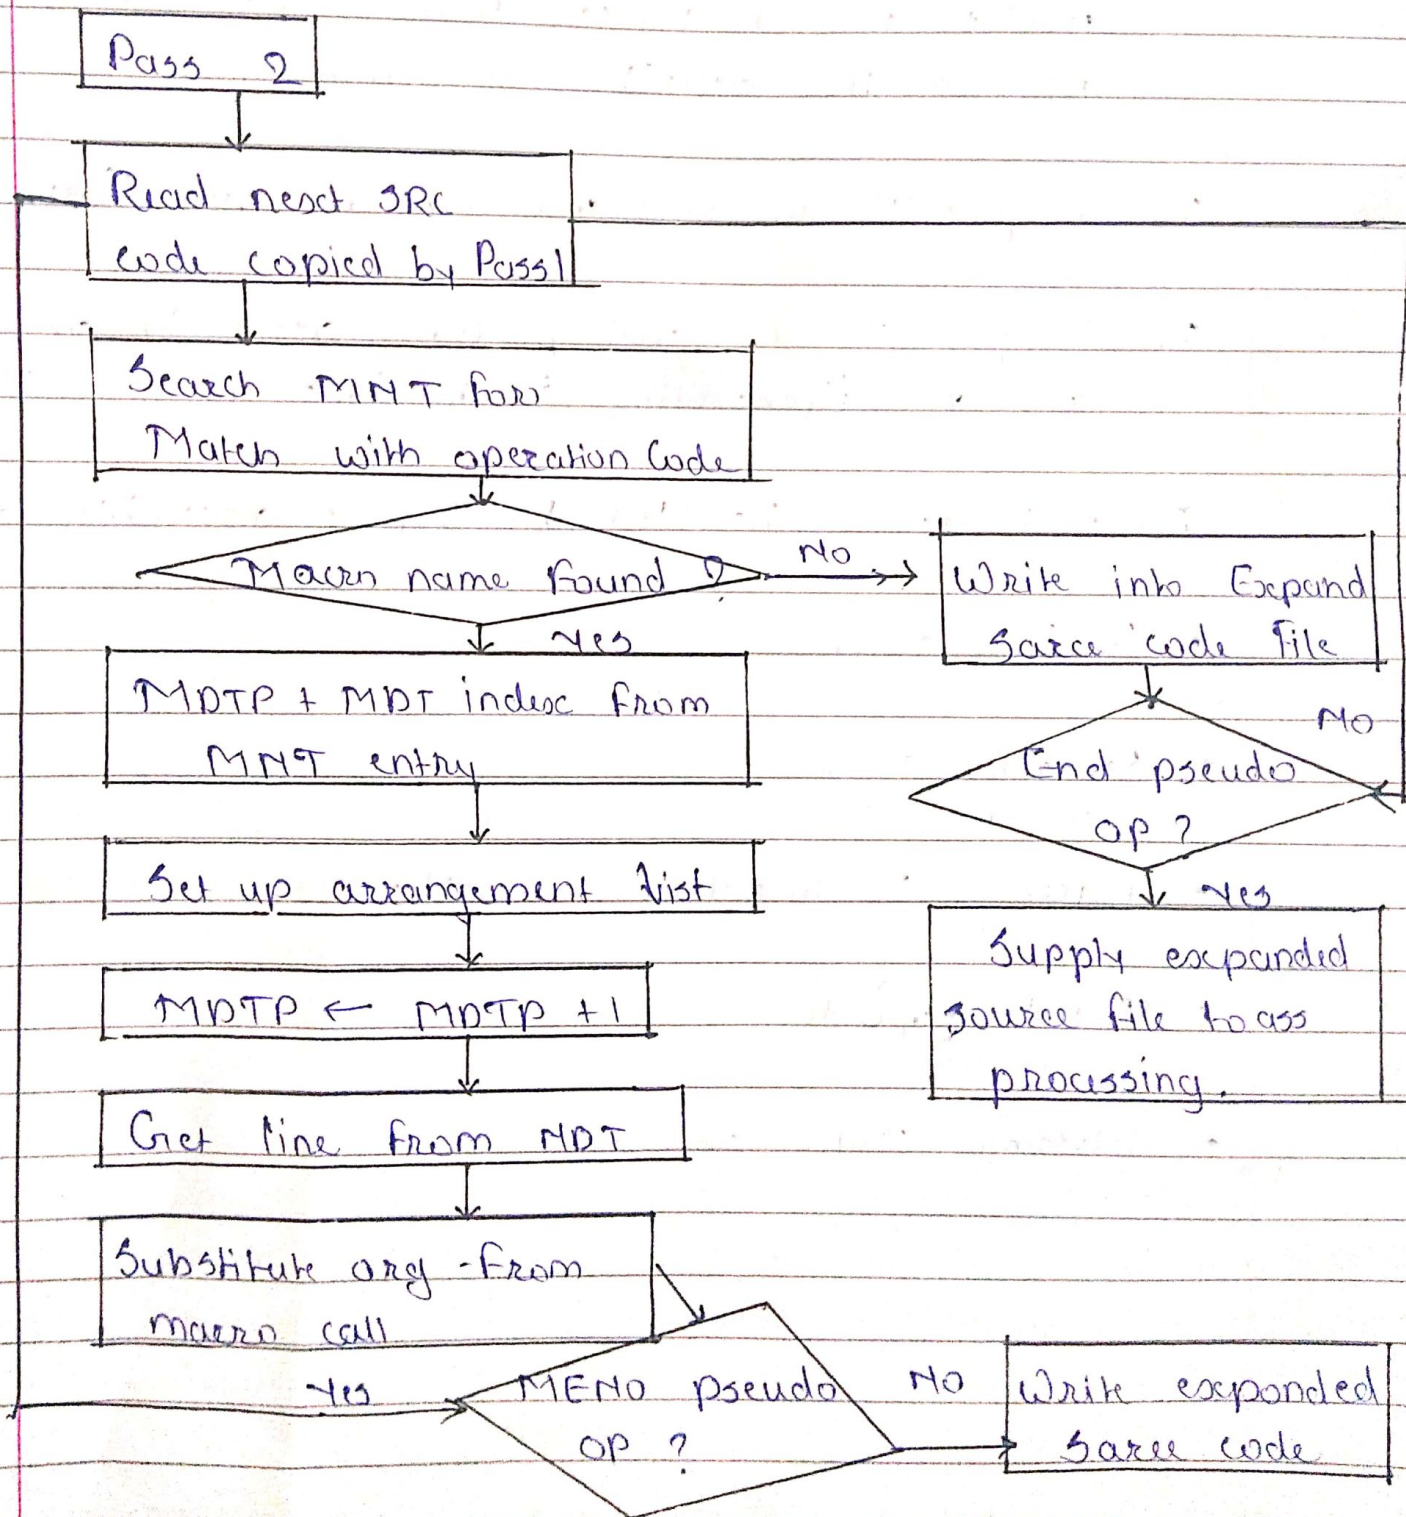 Pass 2
Read next SRC
code copied by Pass1
Search MNT for
Match with operation Code
Macro name Found ?
No
Yes
Write into Expand
Sarce code File
MDTP + MDT index from
MNT entry
No
End pseudo
op ?
Yes
Set up arrangement List
Supply expanded
source file to ass
processing.
MDTP ← MDTP +1
Get line from MDT
Substitute arg - from
macro call
Yes
MEND pseudo
OP ?
NO
Write expanded
Sarce code